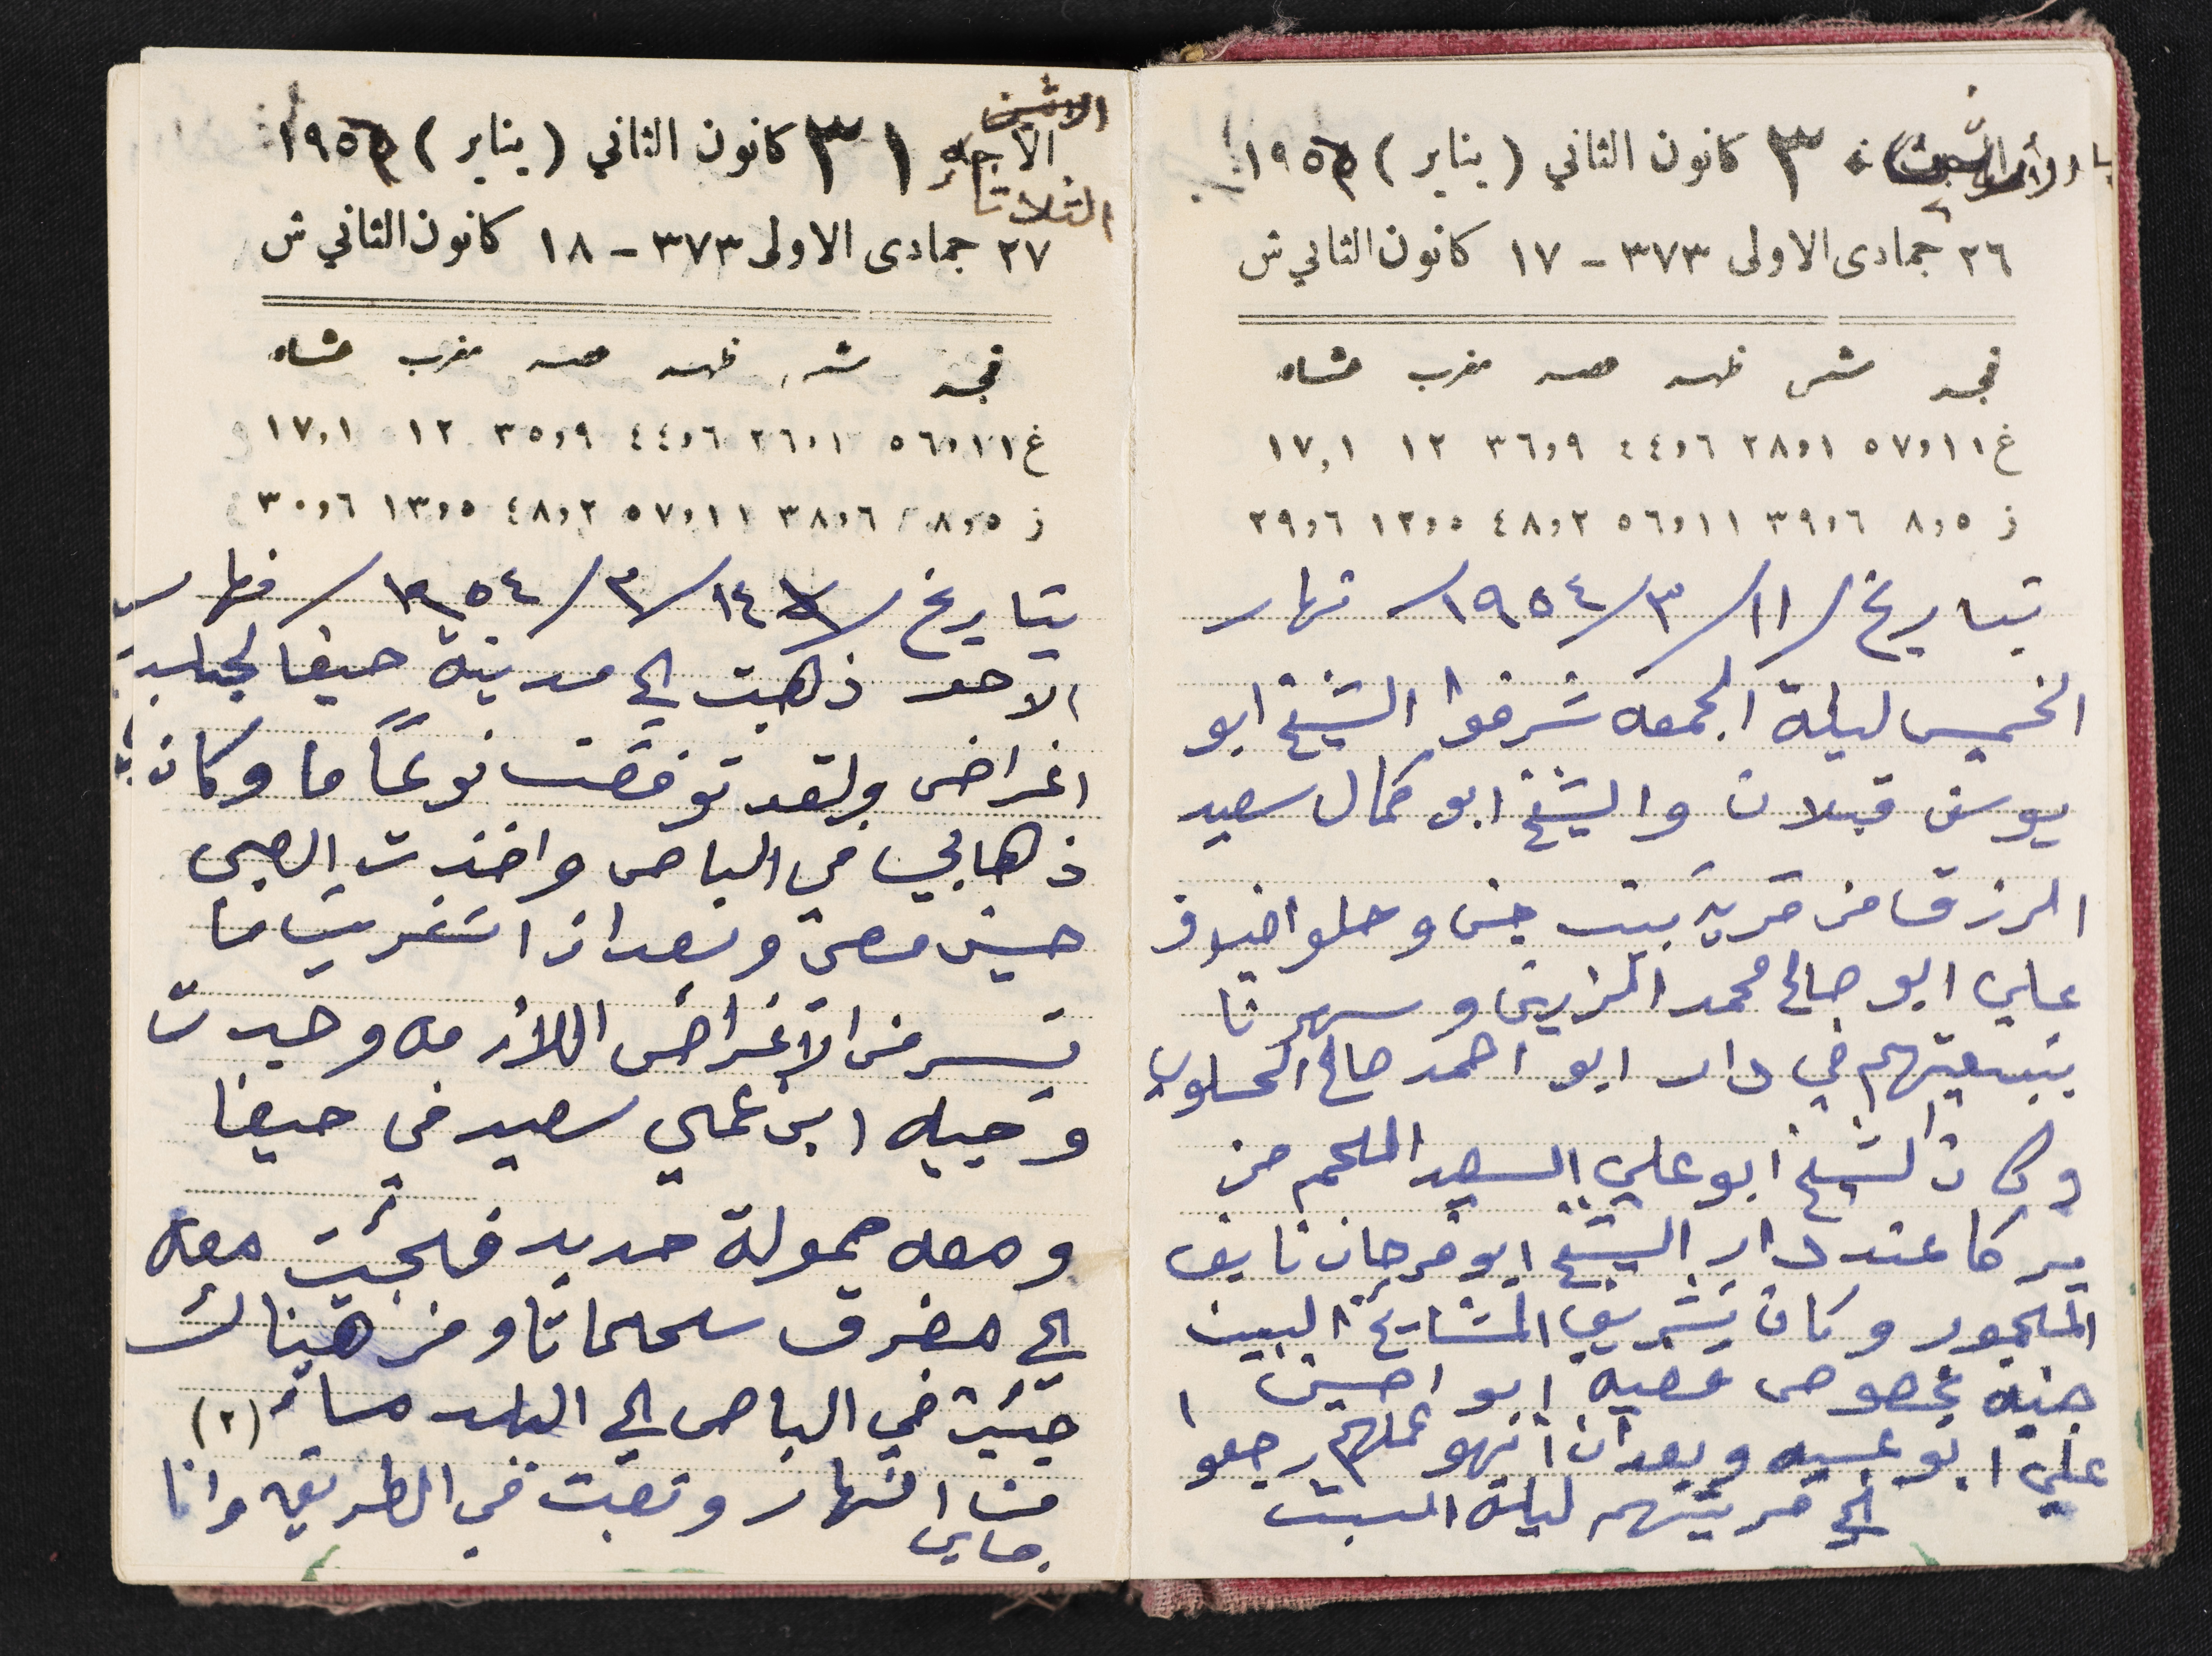 ٣٠ كانون الثاني (يناير) ١٩٥٥
٢٦ جمادى الاولى ٣٧٣ - ١٧ كانون الثاني ش
فجر شمس ظهر عصر مغرب عشاء
غ ٥٧،١١ ٢٨،١ ٤٤،٦ ٣٦،٩ ١٢ ١٧،١
ز ٨،٥ ٣٩،٦ ٥٦،١١ ٤٨،٢ ١٢،٥ ٢٩،٦
بتاريخ / ١١/ ٣/ ١٩٥٤/ نهار
الخميس ليلة الجمعه شرفوا الشيخ ابو
يوسف قبلان والشيخ ابو كمال سعيد
الرزق من قرية بيت جن وحلو اضيوف
علي ابو صالح محمد الزرين وسهرنا
بتبعيتهم في دار ابو احمد صالح الحلو
وكان الشيخ ابو علي السعيد الملحم من
يركا عند دار الشيخ ابو فرحان نايف
الملحم وكان تشريف المشايخ البيت
جنيه بخصوص قضيه ابو احسين
علي ابو عسيه وبعد ان انهو عملهم رجعوا
الى قريتهم ليلة السبت
الاثنين
الاحد ٣١ كانون الثاني (يناير) ١٩٥٥
الثلاثاء
٢٧ جمادى الاولى ٣٧٣ - ١٨ كانون الثاني ش
فجر شمس ظهر عصر مغرب عشاء
غ ٥٦،١١ ٢٦،١ ٤٤،٦ ٣٥،٩ ١٢ ١٧،١
ز ٨،٥ ٣٨،٦ ٥٧،١١ ٤٨،٢ ١٣،٥ ٣٠،٦
بتاريخ / ١٤/ ٣/ ١٩٥٤/ نهار
الاحد ذهبت الى مدينة حيفا لجلب
اغراض ولقد توفقت نوعًا ما وكان
ذهابي في الباص واخذت الصبي
حسين معي وبعد ان اشتريت ما
تيسر من الاغراض اللازمه وجدت
وجيه ابن عمي سعيد في حيفا
ومعه حمولة حديد فجئت معه
الى مفرق سحماتا ومن هناك
جئت في الباص الى البلد مساءً (٢)
من النهار وتعبت في الطريق وانا
جاي